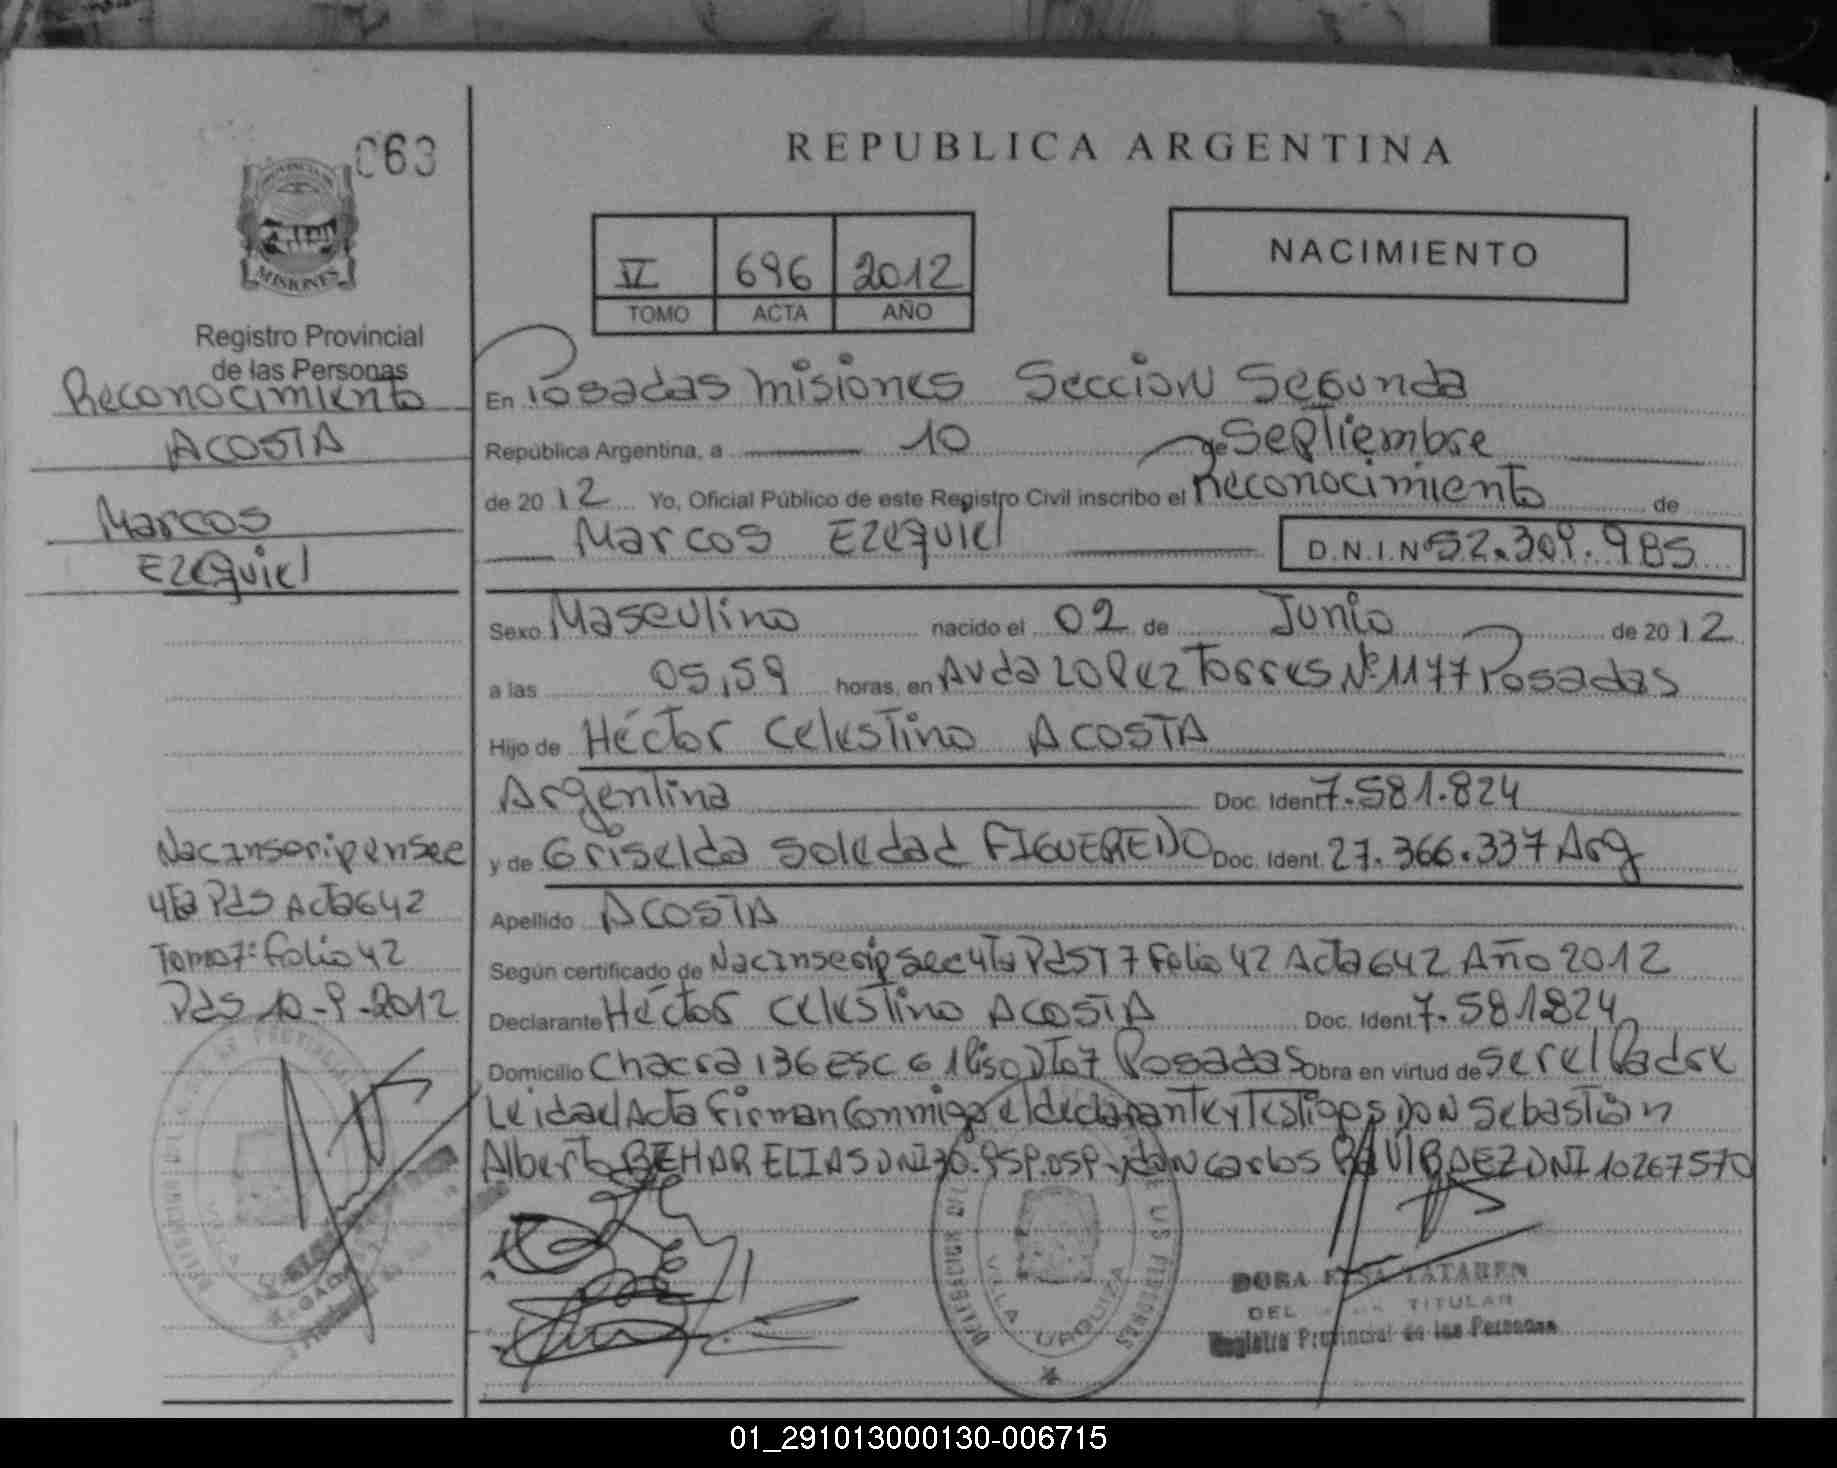 063
PROVINCIA DE
MISIONES
Registro Provincial
de las Personas
Reconocimiento
ACOSTA
Marcos
Ezequiel
Nac Inscrip en Sec
4ta Pds Acta 642
Tomo 7: Folio 42
Pds 10-9-2012
REPUBLICA ARGENTINA
IV 696 2012
TOMO ACTA AÑO
NACIMIENTO
En Posadas Misiones Seccion Segunda
República Argentina, a 10 de Septiembre
de 2012 Yo, Oficial Público de este Registro Civil inscribo el Reconocimiento de
Marcos Ezequiel D.N.I.Nº 52.309.985
Sexo Masculino nacido el 02 de Junio de 2012
a las 05,59 horas, en Avda Lopez Torres Nº 1177 Posadas
Hijo de Héctor Celestino ACOSTA
Argentina Doc. Ident. 7.581.824
y de Griselda Soledad FIGUEREDO Doc. Ident. 27.366.337 Arg
Apellido ACOSTA
Según certificado de Nac Inscrip Sec 4ta Pds T 7 Folio 42 Acta 642 Año 2012
Declarante Héctor Celestino ACOSTA Doc. Ident. 7.581.824
Domicilio Chacra 136 Esc 6 1 Piso Dto 7 Posadas Obra en virtud de ser el Padre
Leida el Acta Firman Conmigo el declarante y Testigos Don Sebastián
Alberto BEHAR ELIAS DNI y don Carlos BAEZ DNI 10267570
VILLA URQUIZA
DE LAS PERSONAS
DORA TATAREN
DEL TITULAR
Registro Provincial de las Personas
01_291013000130-006715